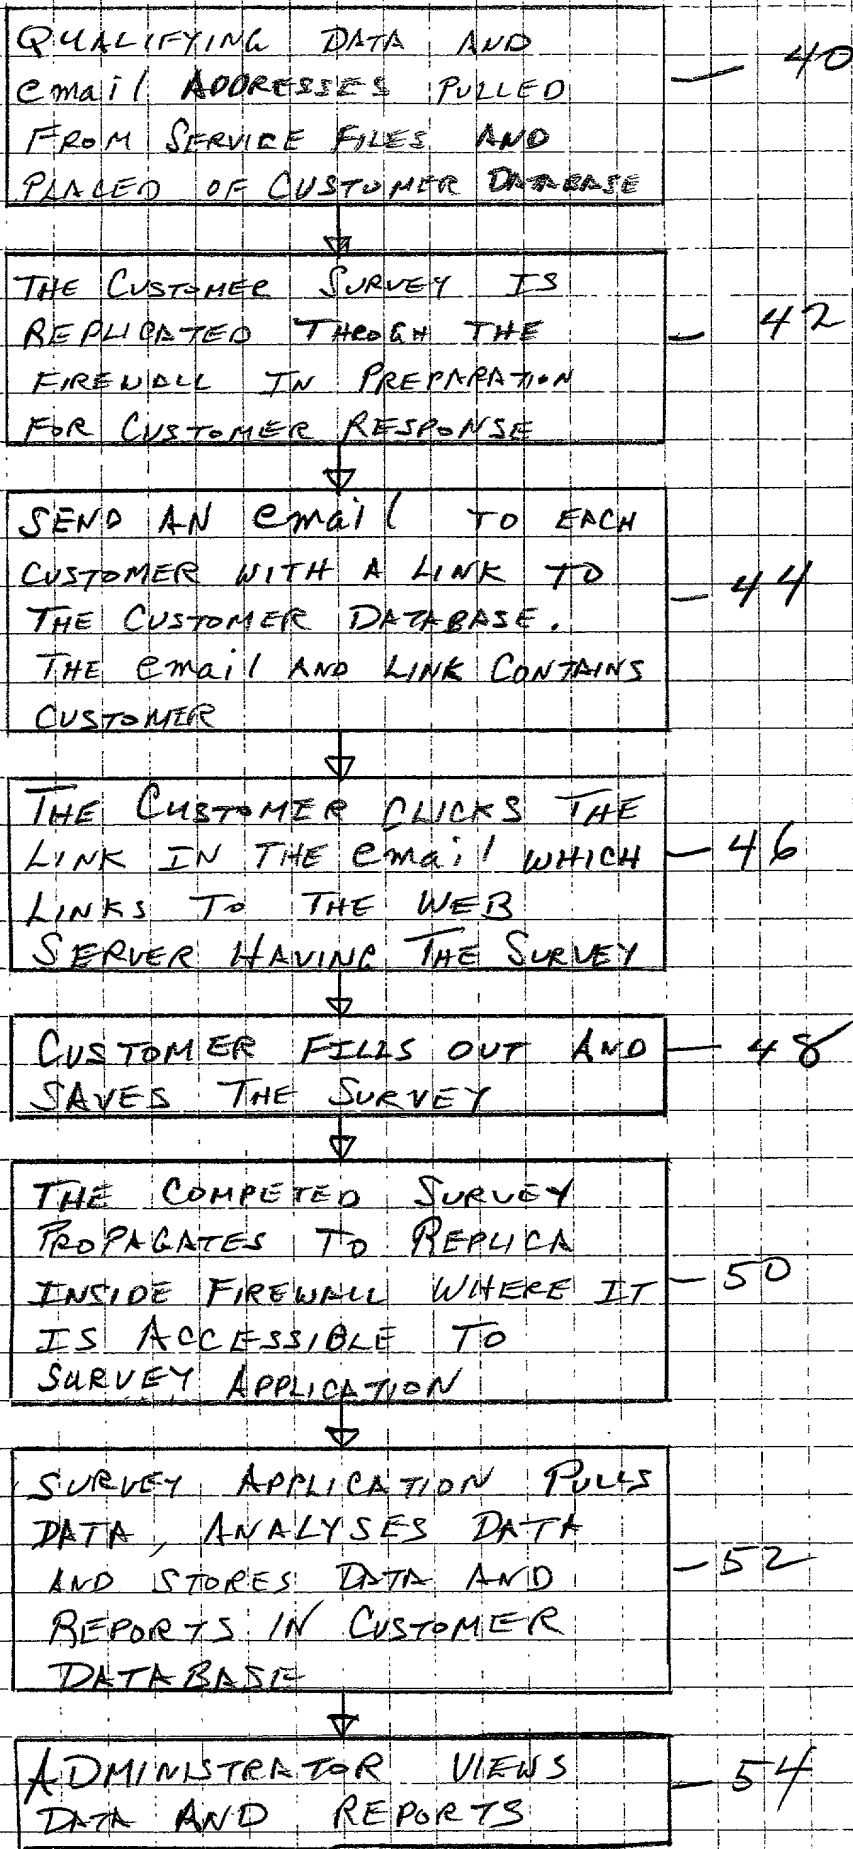 QUALIFYING DATA AND
email ADDRESSES PULLED
FROM SERVICE FILES AND
PLACED OF CUSTOMER DATABASE
40
THE CUSTOMER SURVEY IS
REPLICATED THROGH THE
FIREWALL IN PREPARATION
FOR CUSTOMER RESPONSE
42
SEND AN email TO EACH
CUSTOMER WITH A LINK TO
THE CUSTOMER DATABASE.
THE email AND LINK CONTAINS
CUSTOMER
44
THE CUSTOMER CLICKS THE
LINK IN THE email WHICH
LINKS TO THE WEB
SERVER HAVING THE SURVEY
46
CUSTOMER FILLS OUT AND
SAVES THE SURVEY
48
THE COMPETED SURVEY
PROPAGATES TO REPLICA
INSIDE FIREWALL WHERE IT
IS ACCESSIBLE TO
SURVEY APPLICATION
50
SURVEY APPLICATION PULLS
DATA, ANALYSES DATA
AND STORES DATA AND
REPORTS IN CUSTOMER
DATABASE
52
ADMINISTRATOR VIEWS
DATA AND REPORTS
54